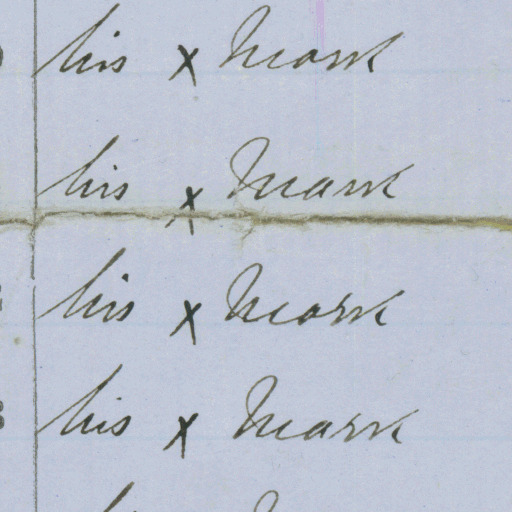 his x mark
his x mark
his x mark
his x mark